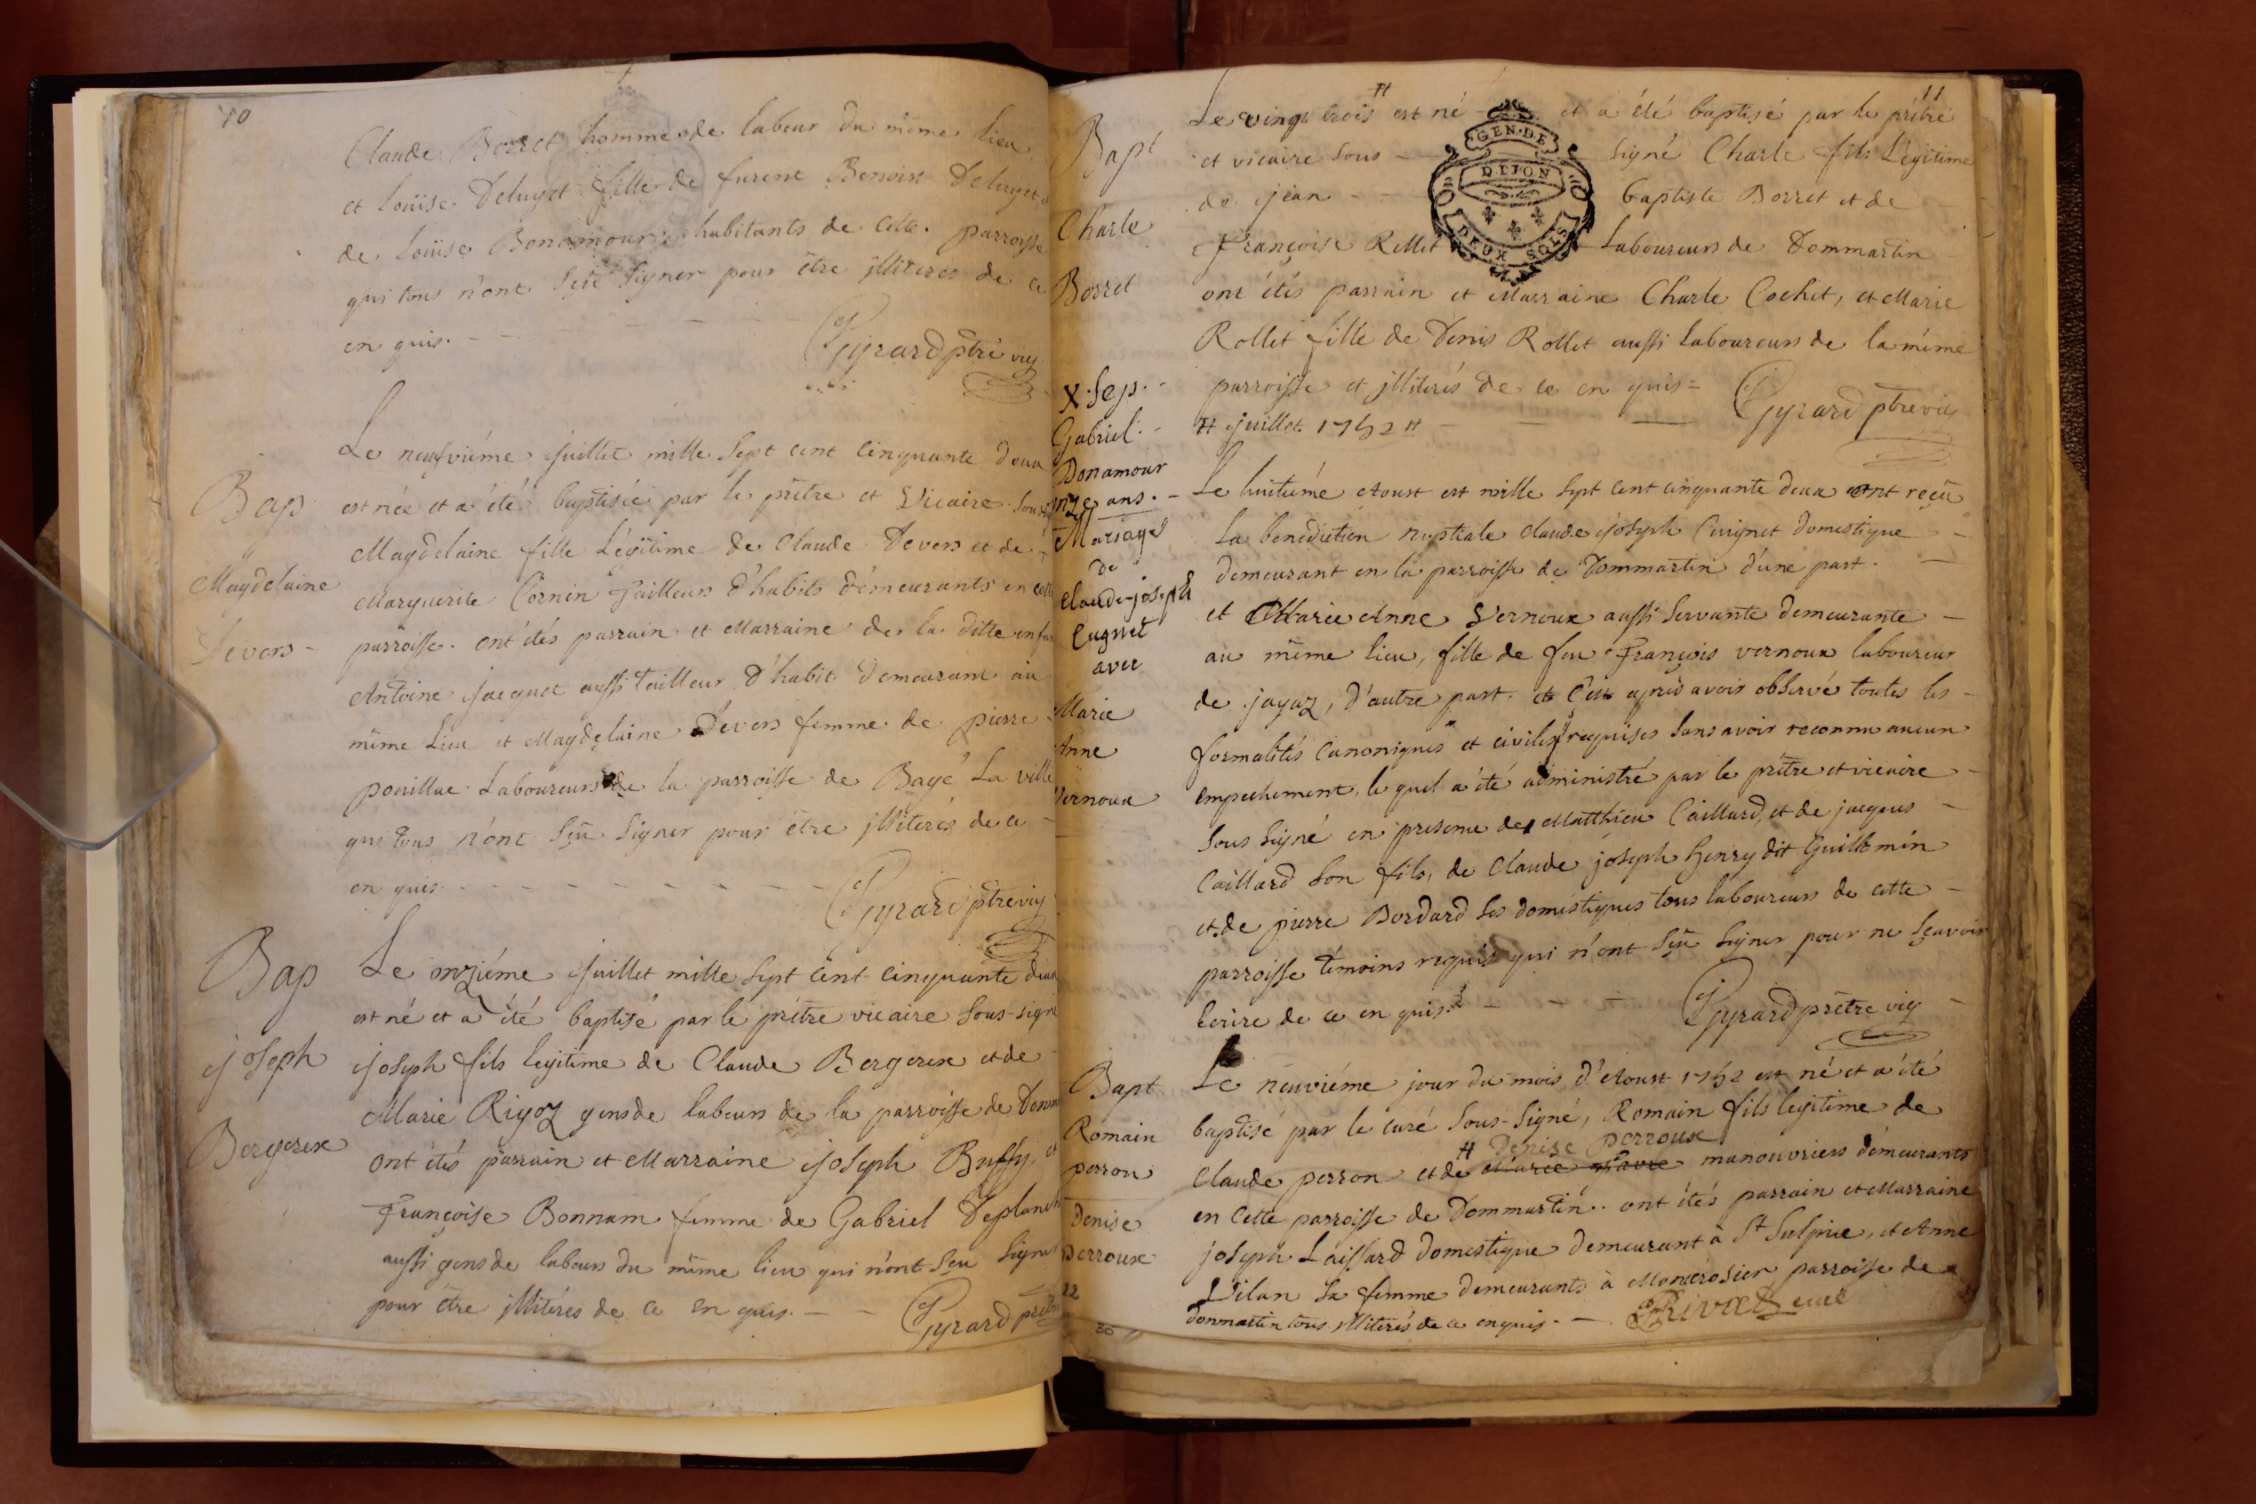 10
Claude Borret homme de labeur du même lieu
et Loüise Deluget fille de furent Benoist Deluget
de Loüise Bonamour habitants de cette parroisse
qui tous n'ont sçu signer pour être jlliterés de ce
en quis.
Gyrard ptre vic
Bap
Magdelaine
Devers
Le neufviéme juillet mille sept cent cinquante deux
est née et a été baptisée par le prêtre et Vicaire sous
Magdelaine fille Légitime de Claude Devers et de
Marguerite Cornin Tailleurs d'habits démeurants en cette
parroisse. ont étés parrain et Marraine de la ditte enfa
Antoine jacquet aussi Tailleur d'habit demeurant au
même Lieu et Magdelaine Devers femme de pierre
pouillue Laboureurs de la parroisse de Bagé La ville
qui tous n'ont sçu signer pour être jlliterés de ce
en quis.
Gyrard ptre vic
Bap
joseph
Bergerex
Le onziéme juillet mille sept cent cinquante deux
est né et a été baptisé par le prêtre vicaire sous-signé
joseph fils legitime de Claude Bergerex et de
Marie Rigoz gens de labeurs de la parroisse de Domm
ont étés parrain et Marraine joseph Buffy et
Françoise Bonnam femme de Gabriel Deplanch
aussi gens de labeurs du même lieu qui n'ont sçu signer
pour être jlliterés de ce en quis.
Gyrard prêtre
11
Bapt
Charle
Borret
Le vingt trois # est né et a été baptisé par le prêtre
et vicaire sous signé Charle fils Légitime
de jean baptiste Borret et de
Françoise Rollet Laboureurs de Dommartin
GEN. DE
DIJON
DEUX SOLS
ont étés parrain et Marraine Charle Cochet, et Marie
Rollet fille de Denis Rollet aussi Laboureurs de la même
parroisse et jlliterés de ce en quis =
# juillet 1752 #
Gyrard ptre vic
X. Sep.
Gabriel
Bonamour
onze ans.
Mariage
de
Claude-joseph
Cugnet
avec
Marie
Anne
Vernoux
Le huitiéme Aoust est mille sept cent cinquante deux ont reçû
La benediction nuptiale Claude joseph Cuignet domestique
demeurant en la parroisse de Dommartin d'une part.
et Marie Anne Vernoux aussi servante demeurante
au même lieu, fille de feu François vernoux laboureur
de jayaz, d'autre part. et C'est apres avoir observé toutes les
formalités canoniques et civiles requises sans avoir reconnu aucun
empechement, le quel a été administré par le prêtre et vicaire
sous signé en presence de Matthieu Caillard, et de jacques
Caillard son fils, de Claude joseph henry dit Guillemin
et de pierre Bordard ses domestiques tous laboureurs de cette
parroisse témoins requis qui n'ont sçû signer pour ne sçavoir
écrire de ce en quis.
Gyrard prêtre vic
Bapt
Romain
perron
Denise
perroux
22
Le neuviéme jour du mois d'Aoust 1752 est né et a été
baptisé par le curé sous-signé, Romain fils legitime de
# Denise perroux
Claude perron et de manouvriers démeurants
en cette parroisse de Dommartin. ont étés parrain et Marraine
joseph Laissard domestique demeurant à St Sulpice, et Anne
Lilan sa femme demeurants à Moncrosier parroisse de
Donmartin tous jlliterés de ce enquis.
Rivat curé